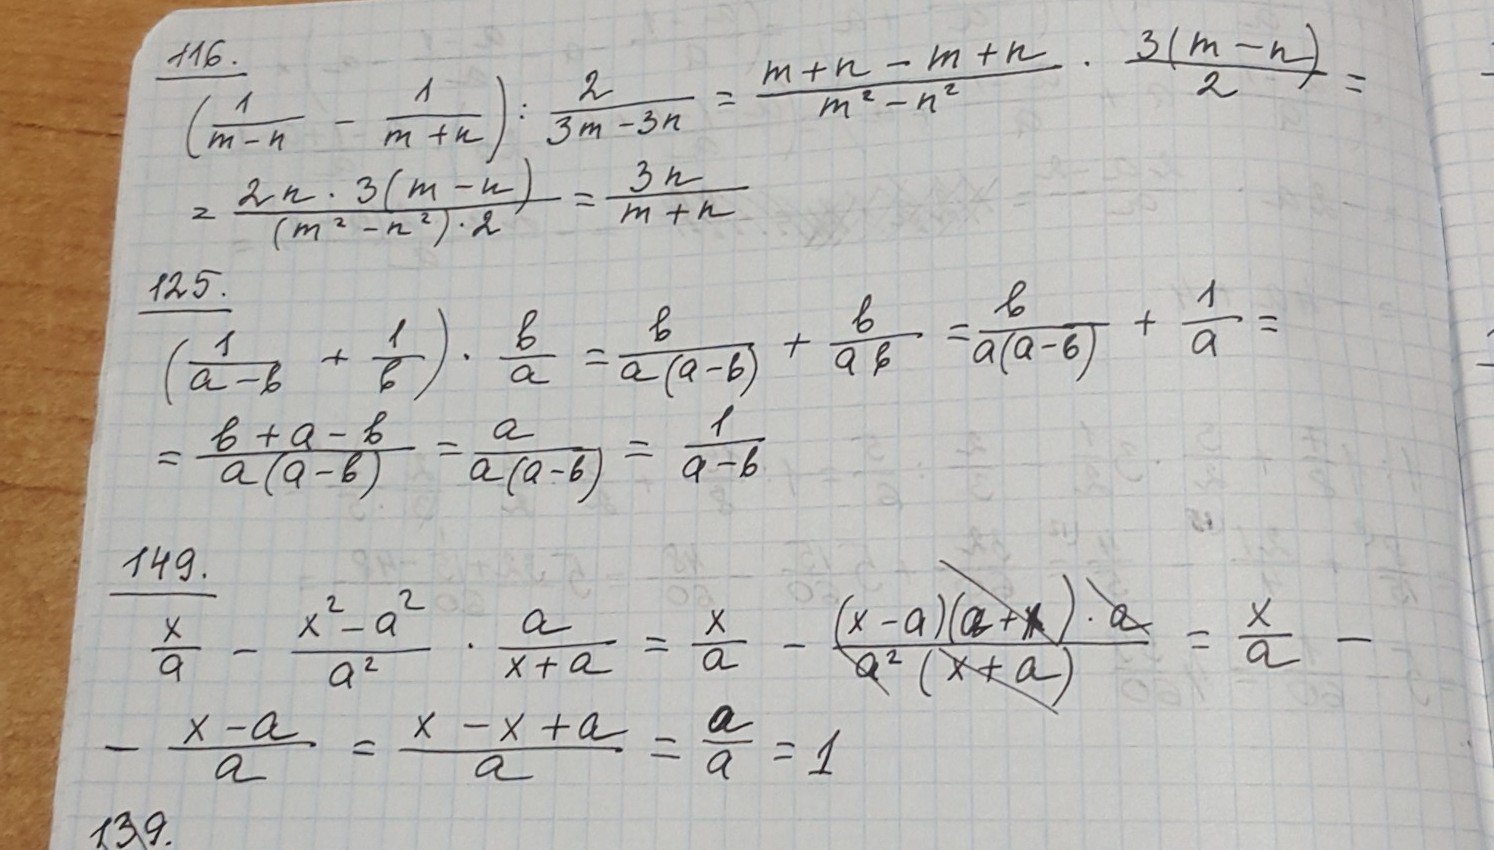 116.
(1/(m-n) - 1/(m+n)) : 2/(3m-3n) = (m+n-m+n)/(m²-n²) · 3(m-n)/2 =
= (2n·3(m-n))/((m²-n²)·2) = 3n/(m+n)
125.
(1/(a-b) + 1/b) · b/a = b/(a(a-b)) + b/(ab) = b/(a(a-b)) + 1/a =
= (b+a-b)/(a(a-b)) = a/(a(a-b)) = 1/(a-b)
149.
x/a - (x²-a²)/a² · a/(x+a) = x/a - ((x-a)(a+x)·a)/(a²(x+a)) = x/a -
- (x-a)/a = (x-x+a)/a = a/a = 1
139.